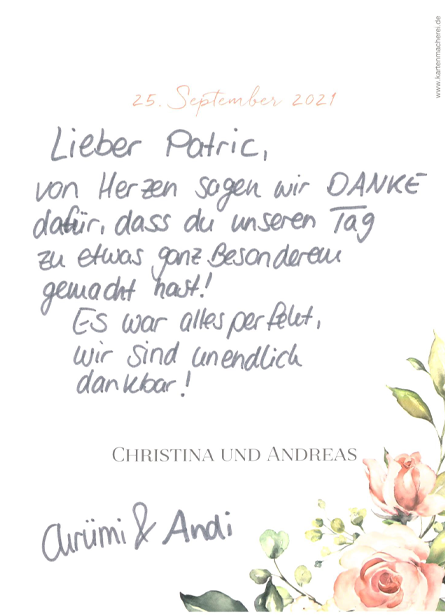 www.kartenmacherei.de
25. September 2021
Lieber Patric,
von Herzen sagen wir DANKE
dafür, dass du unseren Tag
zu etwas ganz Besonderem
gemacht hast!
Es war alles perfekt,
wir sind unendlich
dankbar!
CHRISTINA UND ANDREAS
& Andi